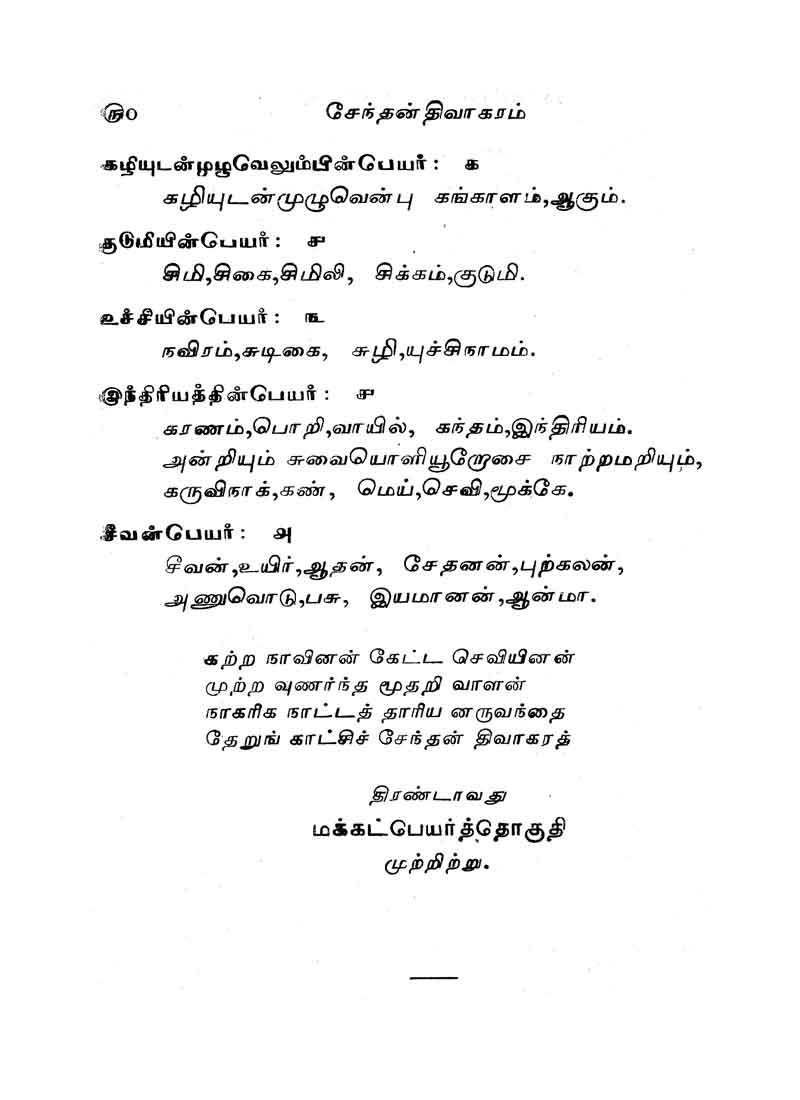 ௫0 சேந்தன்திவாகரம்
கழியுடன்முழுவெலும்பின்பெயர் : ௧
கழியுடன்முழுவென்பு கங்காளம்,ஆகும்.
குடுமியின்பெயர் : ௪
சிமி,சிகை,சிமிலி, சிக்கம்,குடுமி.
உச்சியின்பெயர் : ௩
நவிரம்,சுடிகை, சுழி,யுச்சிநாமம்.
இந்திரியத்தின்பெயர் : ௪
கரணம்,பொறி,வாயில், கந்தம்,இந்திரியம்.
அன்றியும் சுவையொளியூறோசை நாற்றமறியும்,
கருவிநாக்,கண், மெய்,செவி,மூக்கே.
சீவன்பெயர் : ௮
சீவன்,உயிர்,ஆதன், சேதனன்,புற்கலன்,
அணுவொடு,பசு, இயமானன்,ஆன்மா.
கற்ற நாவினன் கேட்ட செவியினன்
முற்ற வுணர்ந்த மூதறி வாளன்
நாகரிக நாட்டத் தாரிய னருவந்தை
தேறுங் காட்சிச் சேந்தன் திவாகரத்
திரண்டாவது
மக்கட்பெயர்த்தொகுதி
முற்றிற்று.